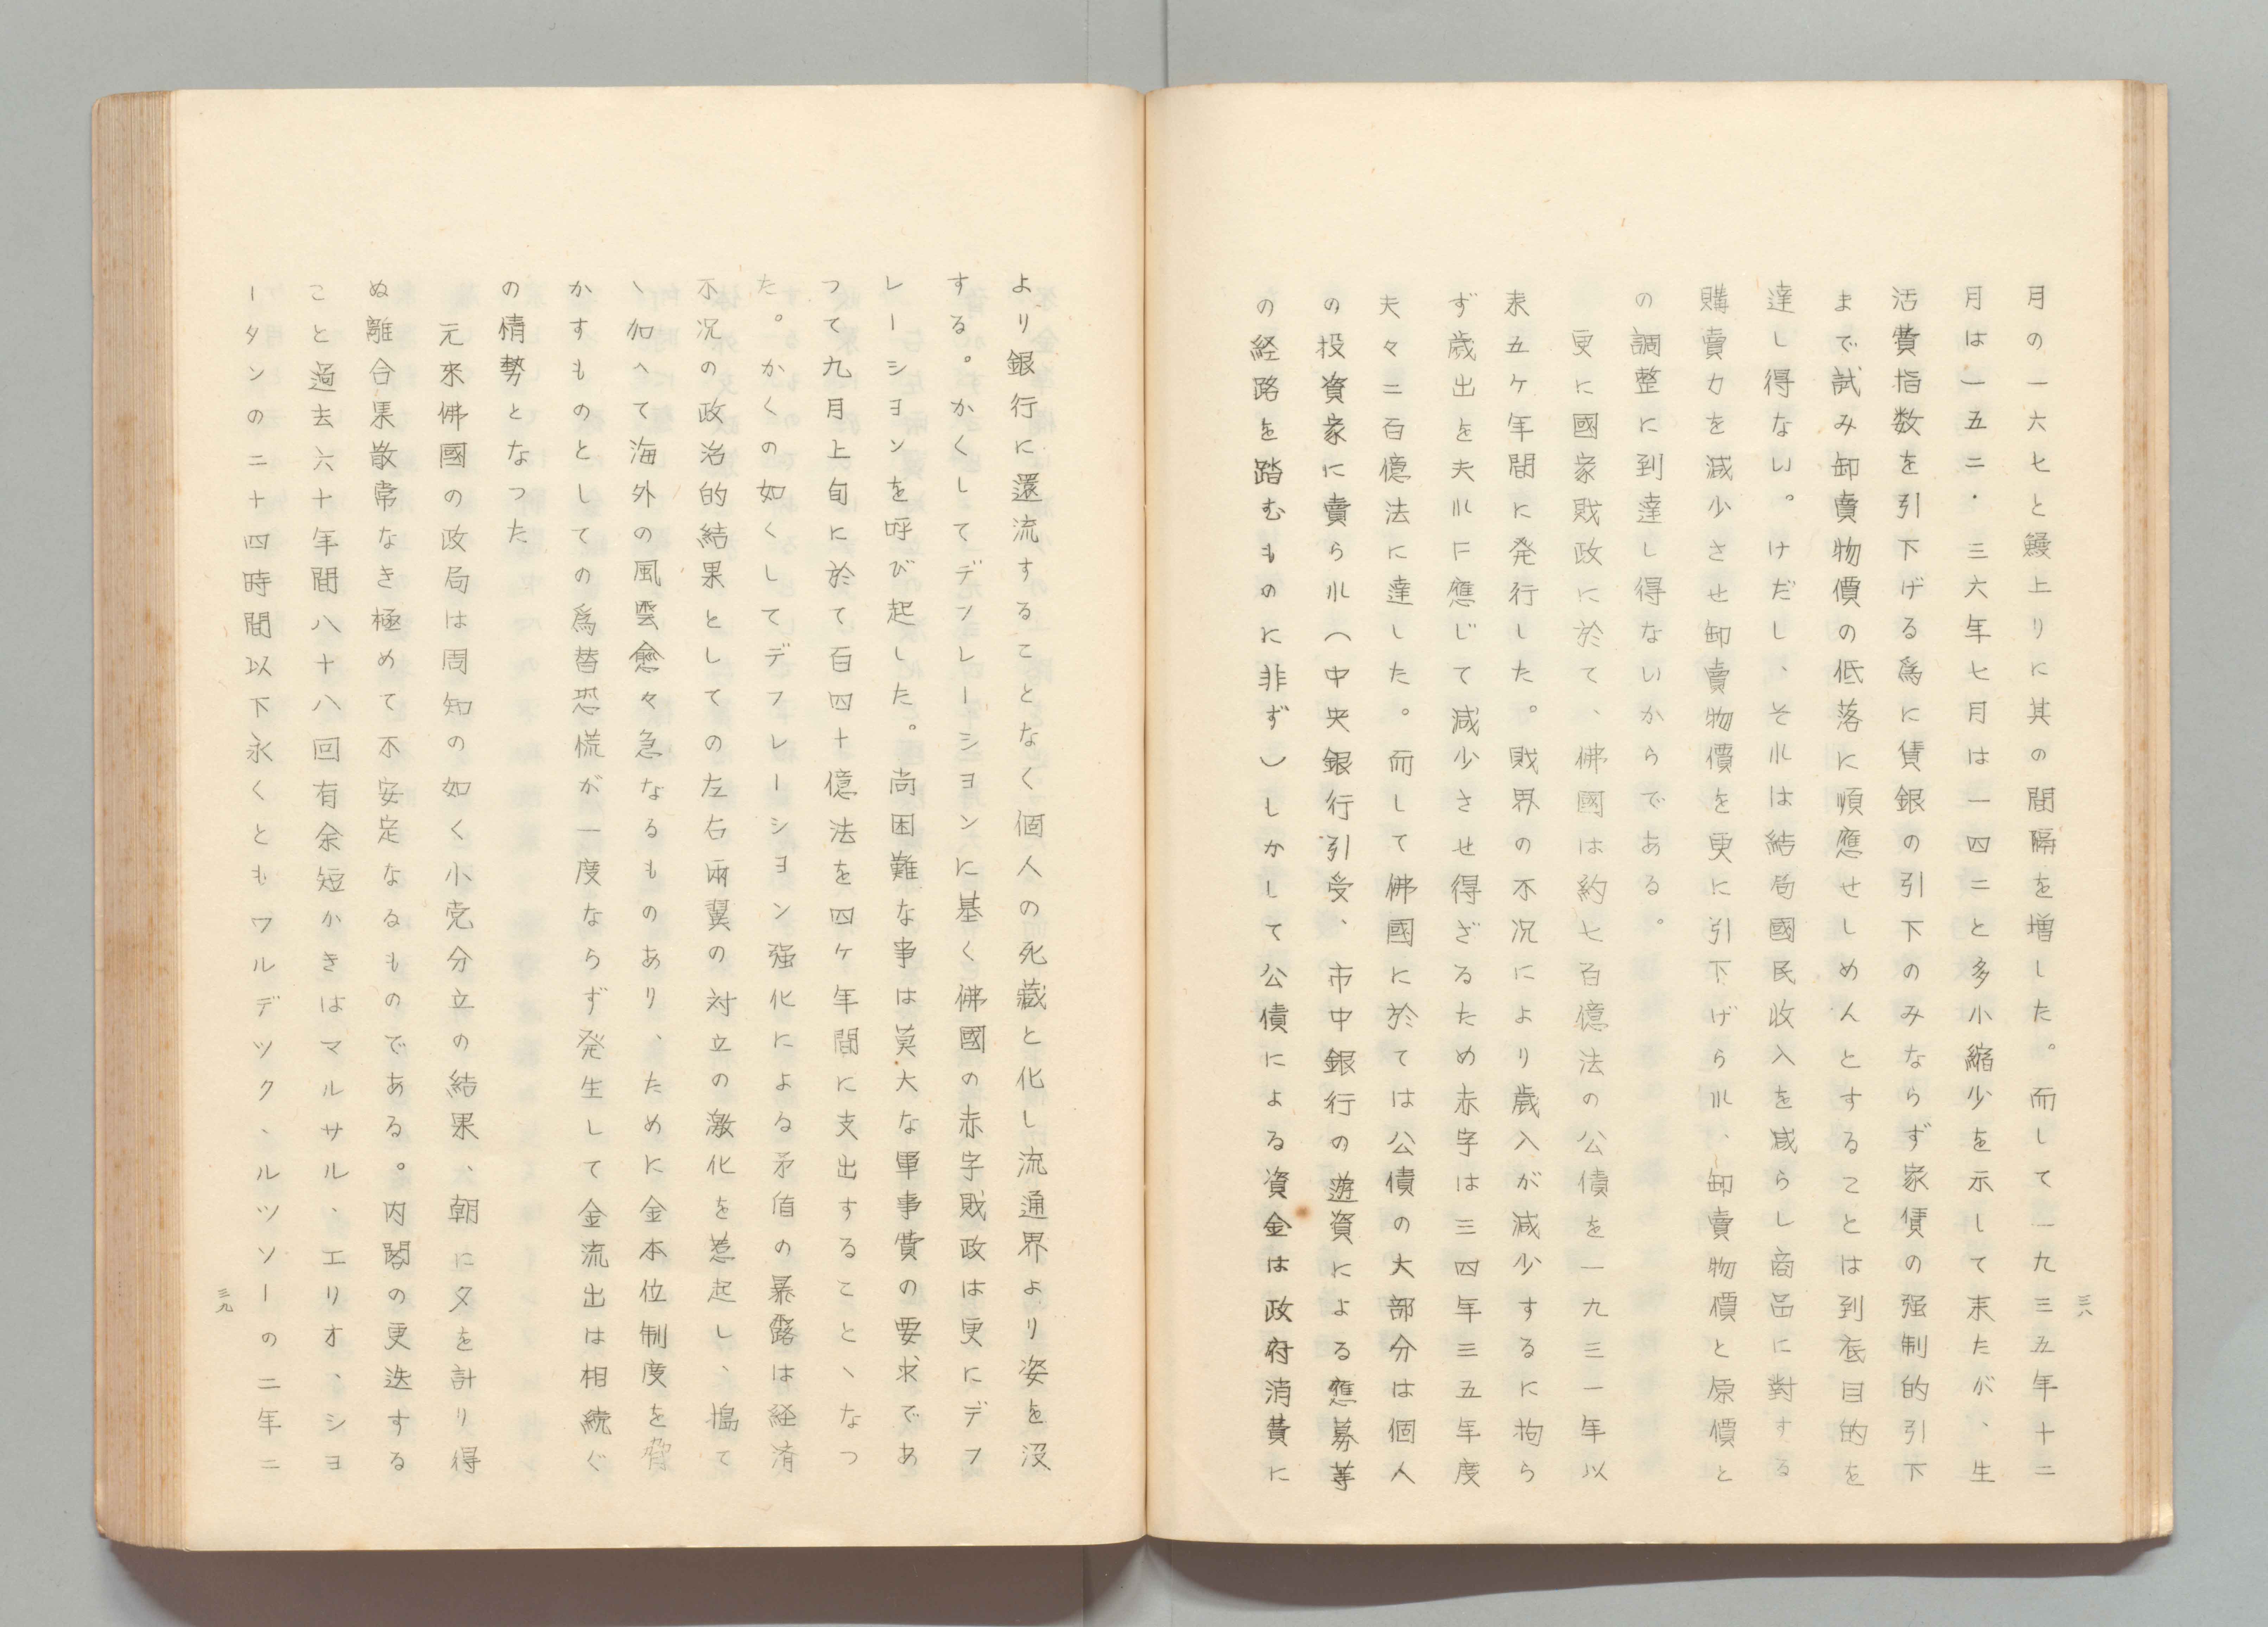 三八
月の一六七と鰻上りに其の間隔を増した。而して一九三五年十二
月は一五二・三六年七月は一四二と多小縮少を示して来たが、生
活費指数を引下げる爲に賃銀の引下のみならず家賃の强制的引下
まで試み卸賣物價の低落に順應せしめんとすることは到底目的を
達し得ない。けだし、それは結局國民收入を减らし商品に對する
購賣力を减少させ卸賣物價を更に引下げられ、卸賣物價と原價と
の調整に到達し得ないからである。
更に國家財政に於て、佛國は約七百億法の公債を一九三一年以
来五ケ年間に発行した。財界の不況により歳入が减少するに拘ら
ず歳出を夫れに應じて减少させ得ざるため赤字は三四年三五年度
夫々二百億法に達した。而して佛國に於ては公債の大部分は個人
の投資家に賣られ（中央銀行引受、市中銀行の遊資による應募等
の経路を踏むものに非ず）しかして公債による資金は政府消費に
より銀行に還流することなく個人の死藏と化し流通界より姿を没
する。かくしてデンレーションに基く佛國の赤字財政は更にデフ
レーションを呼び起した。尚困難な事は莫大な軍事費の要求であ
つて九月上旬に於て百四十億法を四ケ年間に支出することヽなつ
た。かくの如くしてデフレーション强化による矛盾の暴露は経済
不況の政治的結果としての左右兩翼の対立の激化を惹起し、搗て
ヽ加へて海外の風雲愈々急なるものあり、ために金本位制度を脅
かすものとしての爲替恐慌が一度ならず発生して金流出は相続ぐ
の情勢となつた
元來佛國の政局は周知の如く小党分立の結果、朝に夕を計り得
ぬ離合果散常なき極めて不安定なるものである。内閣の更迭する
こと過去六十年間八十八回有余短かきはマルサル、エリオ、ショ
ータンの二十四時間以下永くともワルデツク、ルツソーの二年二
三九